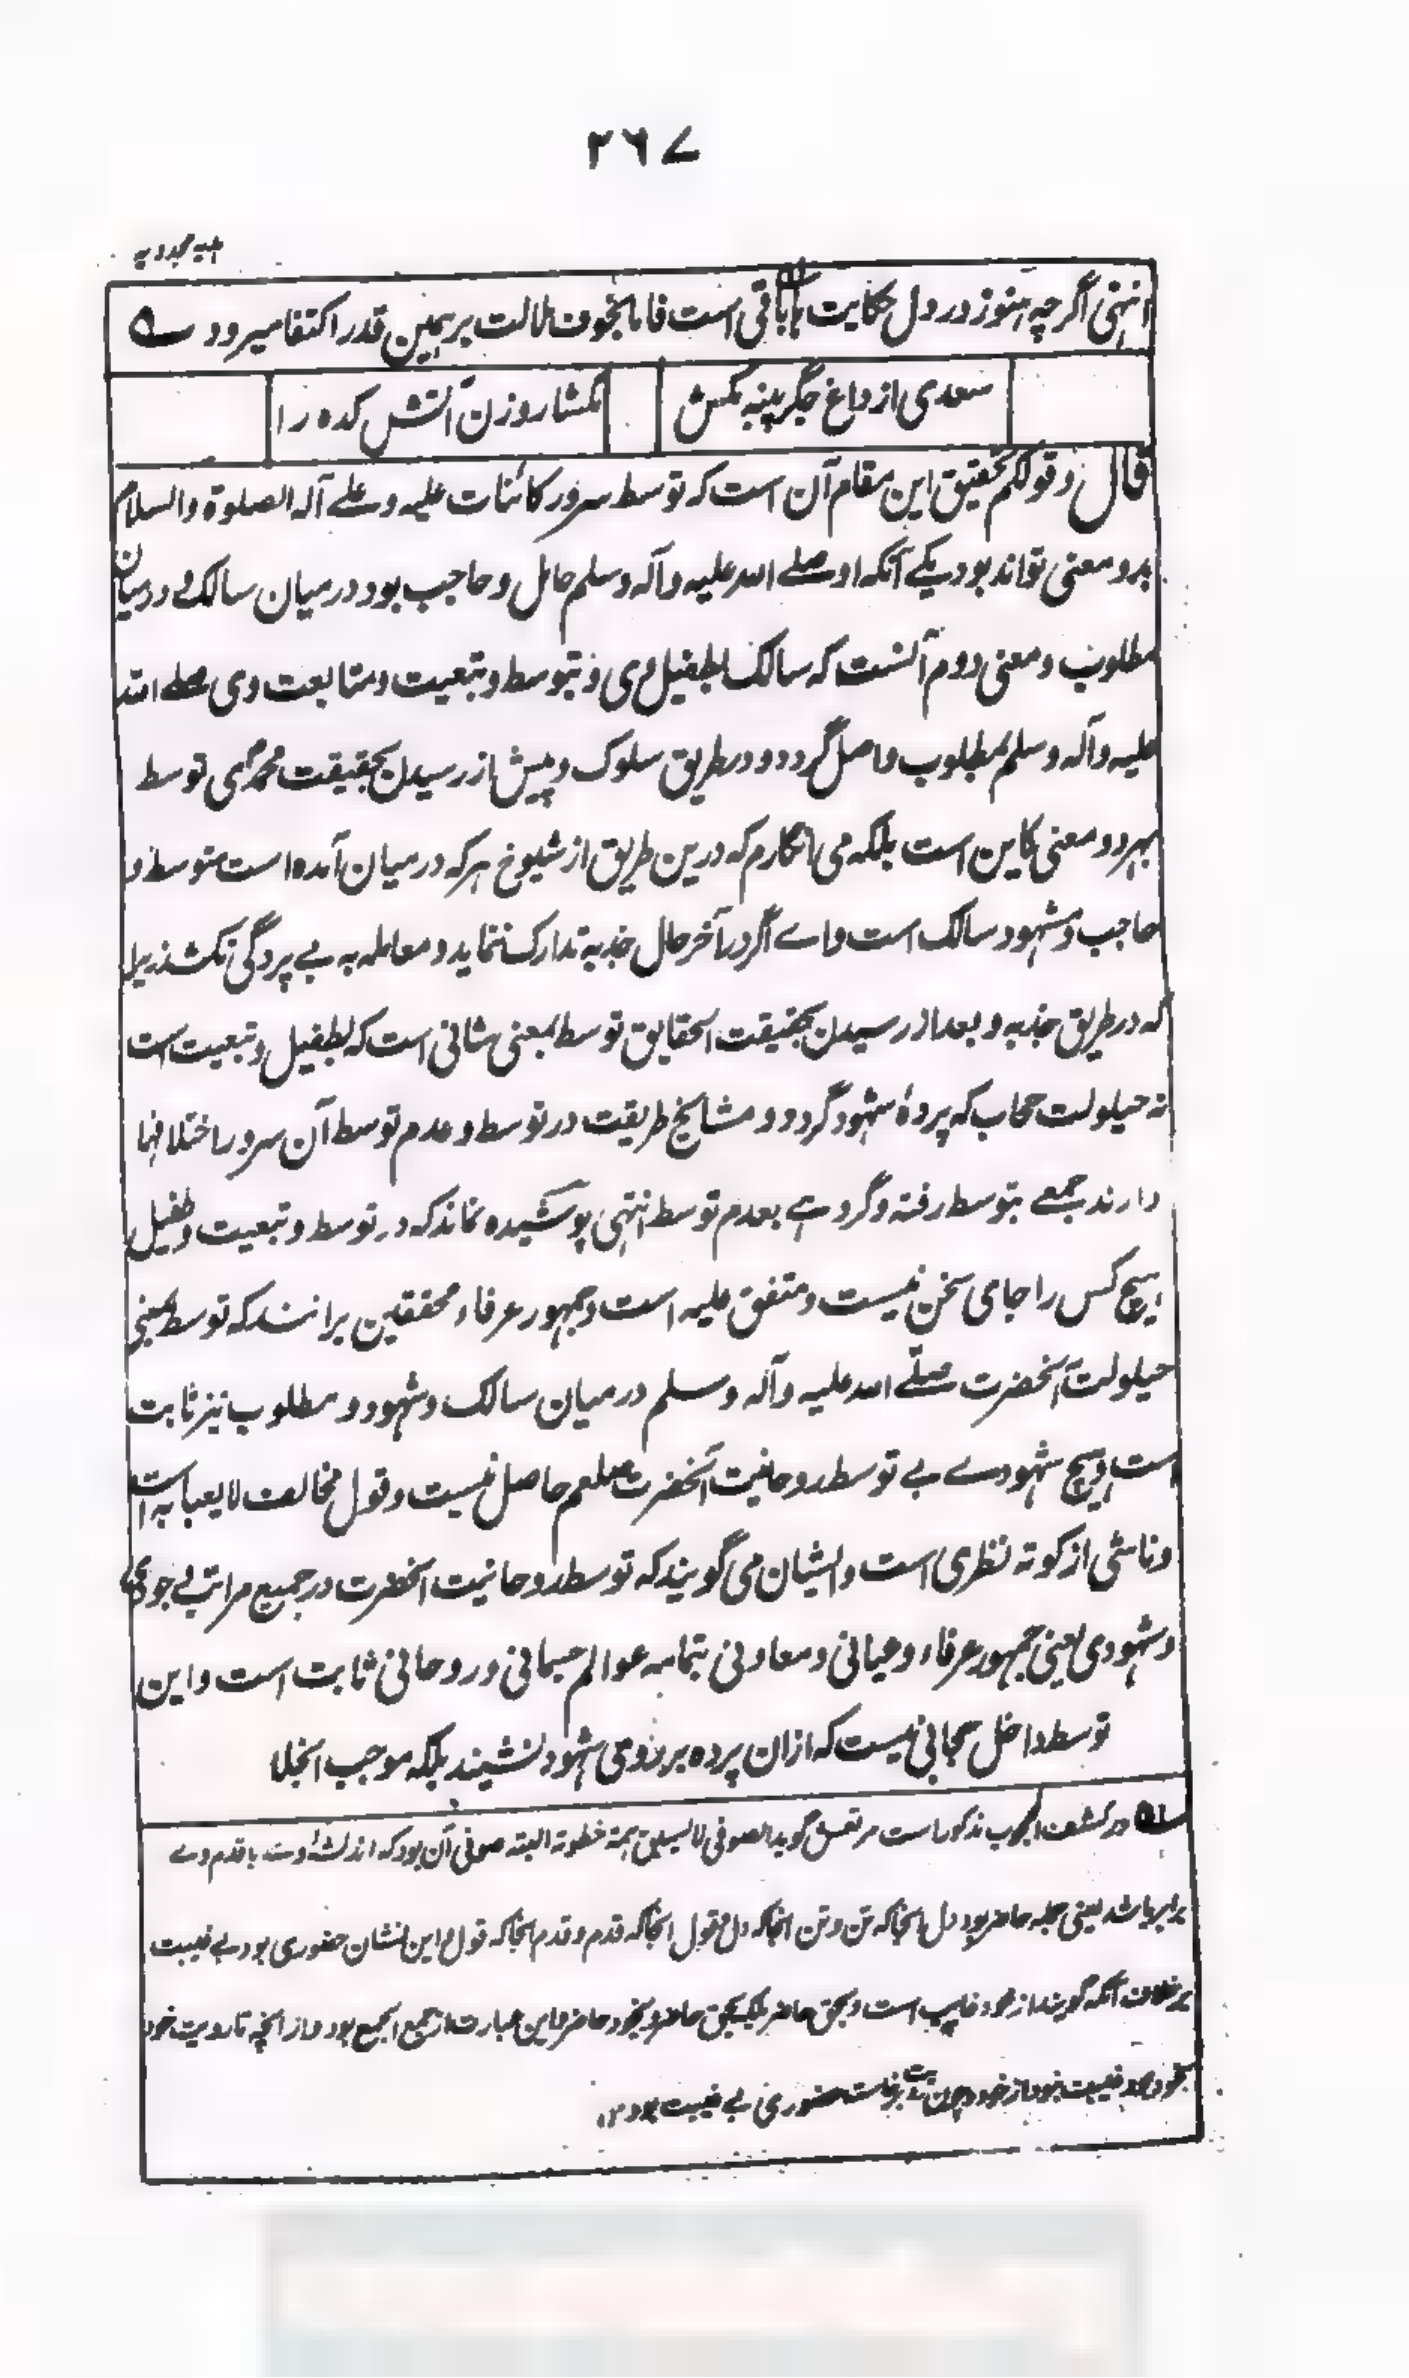 ۲۶۷
انتهی اگرچه هنوز در دل حکایت باقی است فاما بخوف ملالت بر همین قدر اکتفا میرود ے
سعدی از داغ جگر پنبه مکش
مکشا روزن آتش کده را
قال وقولکم تحقیق این مقام آن است که توسط سرور کائنات علیه وعلے آله الصلوة والسلام
بدو معنی تواند بود یکے آنکه او صلے الله علیه وآله وسلم حائل و حاجب بود درمیان سالک و درمیان
مطلوب و معنی دوم آنست که سالک بطفیل وی و بتوسط و تبعیت و متابعت وی صلے الله
علیه وآله وسلم بمطلوب واصل گردد و در طریق سلوک و پیش از رسیدن بحقیقت محمدی توسط
بهر دو معنی کاین است بلکه می انگارم که درین طریق از شیوخ هر که درمیان آمده است متوسط و
حاجب و شهود سالک است واے اگر در آخر حال جذبه تدارک ننماید و معامله به بے پردگی نکشد زیرا
که در طریق جذبه و بعد از رسیدن بحقیقت الحقایق توسط بمعنی ثانی است که بطفیل و تبعیت است
نه حیلولت حجاب که پردهٔ شهود گردد و مشایخ طریقت در توسط و عدم توسط آن سرور اختلافها
دارند جمعے بتوسط رفته و گروهے بعدم توسط انتهی پوشیده نماند که در توسط و تبعیت و طفیل
هیچ کس را جای سخن نیست و متفق علیه است و جمهور عرفاء محققین برانند که توسط بمعنی
حیلولت آنحضرت صلے الله علیه وآله وسلم درمیان سالک و شهود و مطلوب نیز ثابت
است و هیچ شهودے بے توسط روحانیت آنحضرت صلعم حاصل نیست و قول مخالف لا یعبا به است
و ناشی از کوته نظری است و ایشان می گویند که توسط روحانیت آنحضرت در جمیع مراتب
و شهودی یعنی جمهور عرفاء و عیانی و معاونی بتمامه عوالم جسمانی و روحانی ثابت است و این
توسط داخل حجابی نیست که ازان پرده بر روی شهود نشیند بلکه موجب انجلا
در کشف المحجوب مذکور است مرتعش گوید الصوفی لا یسبق همته خطوته البته صوفی آن بود که اندیشهٔ وے با قدم وے
برابر باشد یعنی جمله حاضر بود دل آنجا که تن و تن آنجا که دل و قول آنجا که قدم و قدم آنجا که قول این نشان حضوری بود بے غیبت
بر خلاف آنکه گویند از خود غایب است و بحق حاضر بلکه بحق حاضر و بخود حاضر و این عبارت از جمع الجمع بود و از آنچه تا رویت خود
بخود بود غیبت نبود از خود چون رویت برخاست حضوری بے غیبت بود